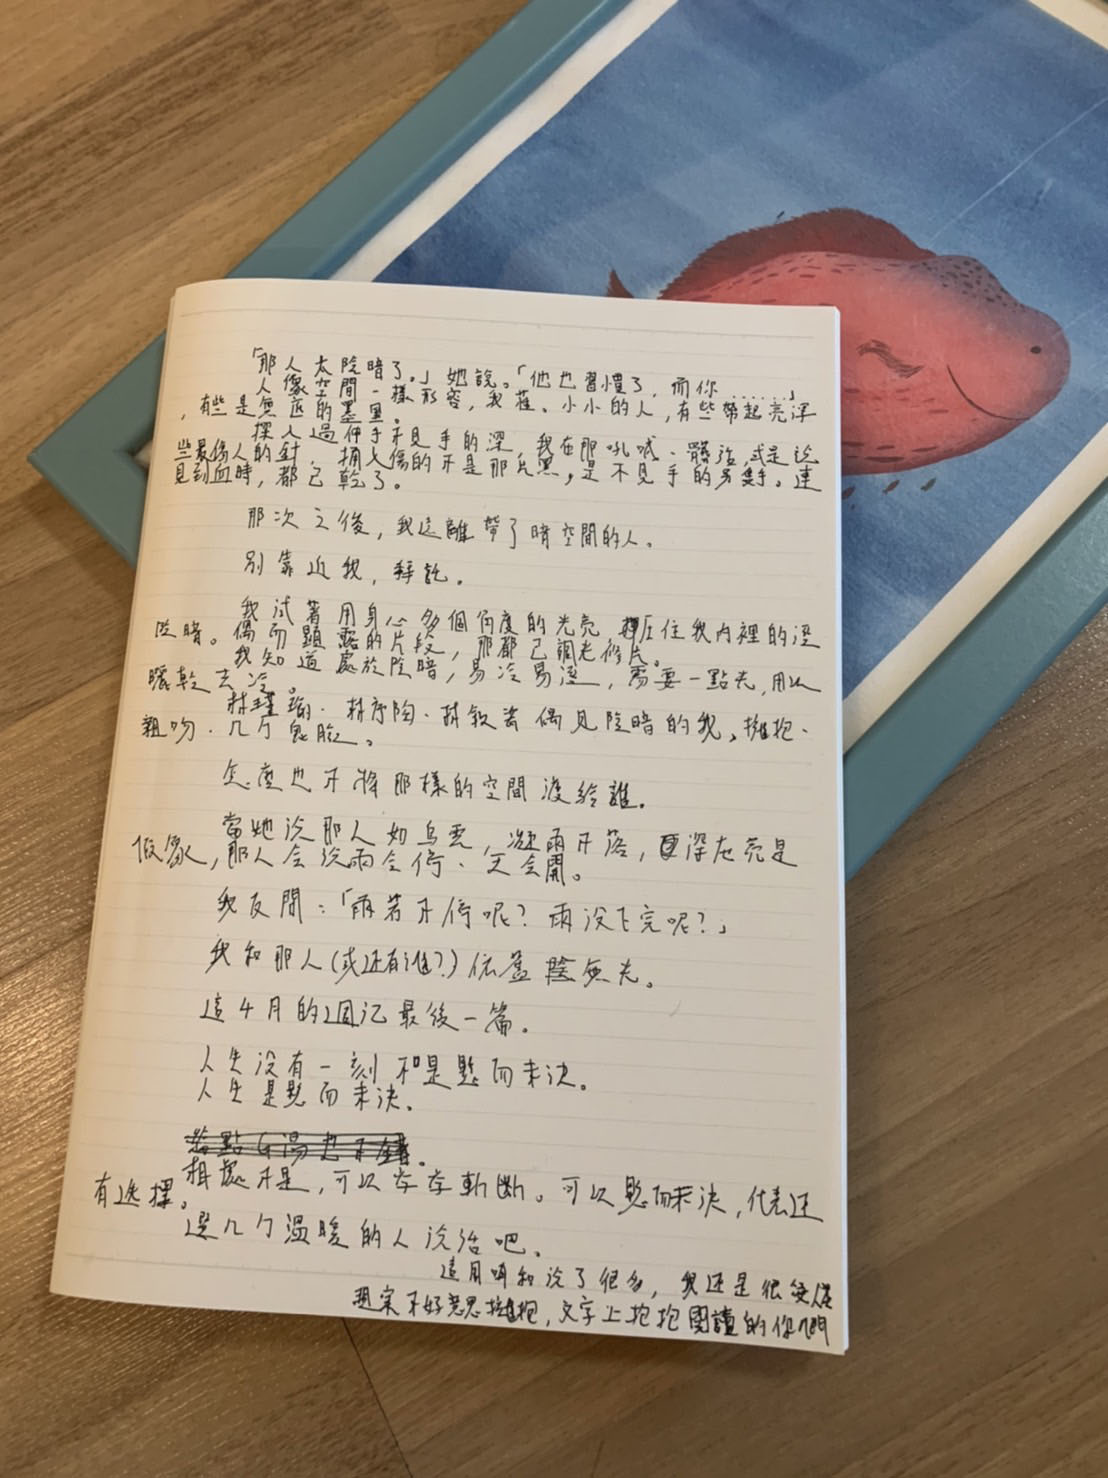 「那人太陰暗了。」她說。「他也習慣了,而你……」
人像空間一樣形容,我在、小小的人,有些帶起亮深
,有些是無底的墨黑。
探入過伸手不見手的深,我在那吼喊、髒話,或是說
些最傷人的針,捅人傷的不是那片黑,是不見手的另隻手。連
見到血時,都已乾了。
那次之後,我遠離帶了暗空間的人。
別靠近我,拜託。
我試著用身心多個角度的光亮壓住我內裡的溼
陰暗。偶而顯露的片段,那都已調光修片。
我知道處於陰暗,易冷易溼,需要一點光,用以
曬乾去冷。
林瑾瑜、林序陶、林敘 偶見陰暗的我,擁抱、
親吻、几个鬼臉。
怎麼也不將那樣的空間渡給誰。
當她說那人如烏雲,凝雨不落,更深灰亮是
假象,那人会說雨会停、天会開。
我反問:「雨若不停呢?雨沒下完呢?」
我和那人(或还有誰?)依舊陰無光。
這4月的週記最後一篇。
人生沒有一刻不是懸而未決。
人生是懸而未決。
相處不是,可以存存斬斷。可以懸而未決,代表还
有選擇。
選几个溫暖的人說話吧。
這月 和說了很多,我还是很
抱,文字上抱抱閱讀的你們